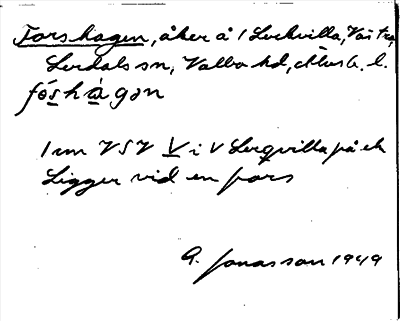 Forshagen, åker å 1 Lockvilla, Västra
Lerdals sn, Valbo hd, Älvsb. l.
fo̕s̲há̲gən
1 cm VSV V̲ i V Lerqvilla på ek
Ligger vid en fors
A. Jonasson 1949